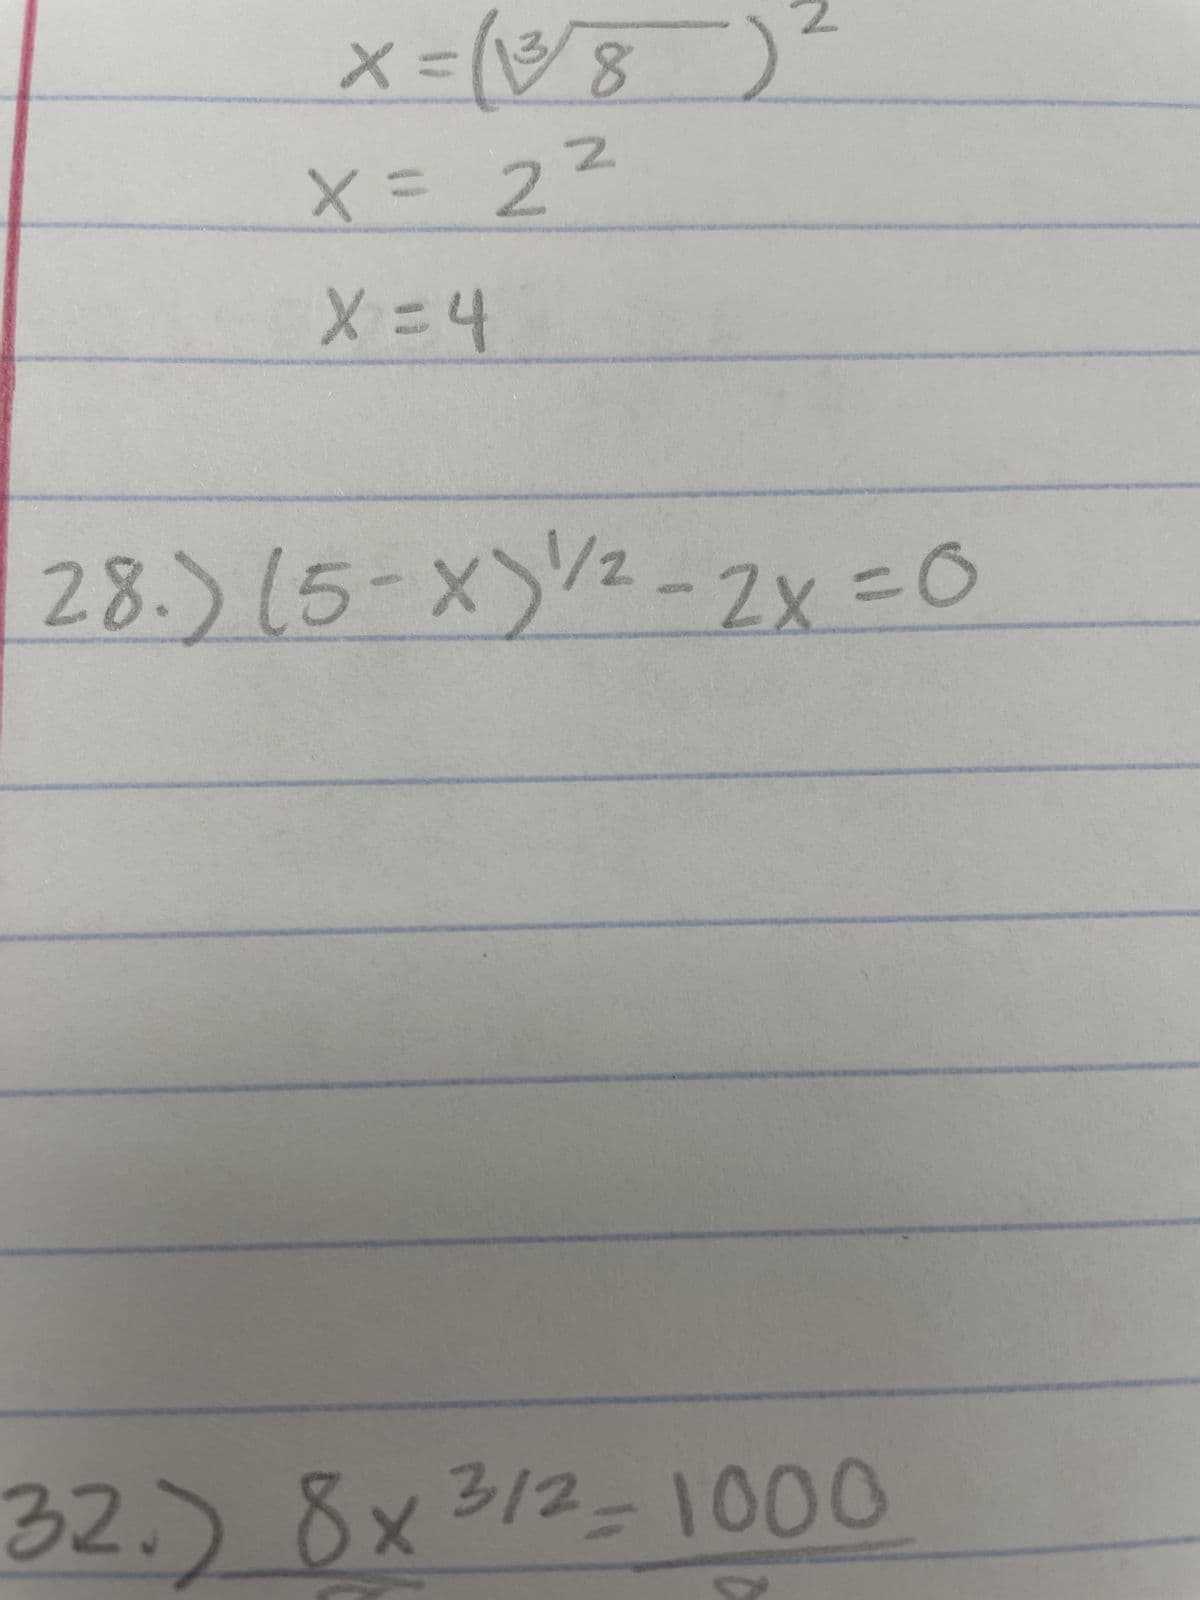 x = (∛8)²
x = 2²
x = 4
28.) (5-x)^1/2 - 2x = 0
32.) 8x^3/2 = 1000